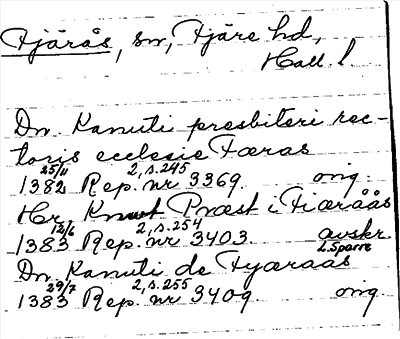 Fjärås, sn, Fjäre hd,
Hall. l.
Dn. Kanuti presbiteri rec-
toris ecclesie Færas
25/11 2, s. 245
1382 Rep. nr 3369. orig.
Hr. Knut Præst i Fiæråås
12/6 2, s. 254
1383 Rep. nr 3403. avskr.
L. Sparre
Dn. Kanuti de Fyæraas
29/7 2, s. 255
1383 Rep. nr 3409. orig